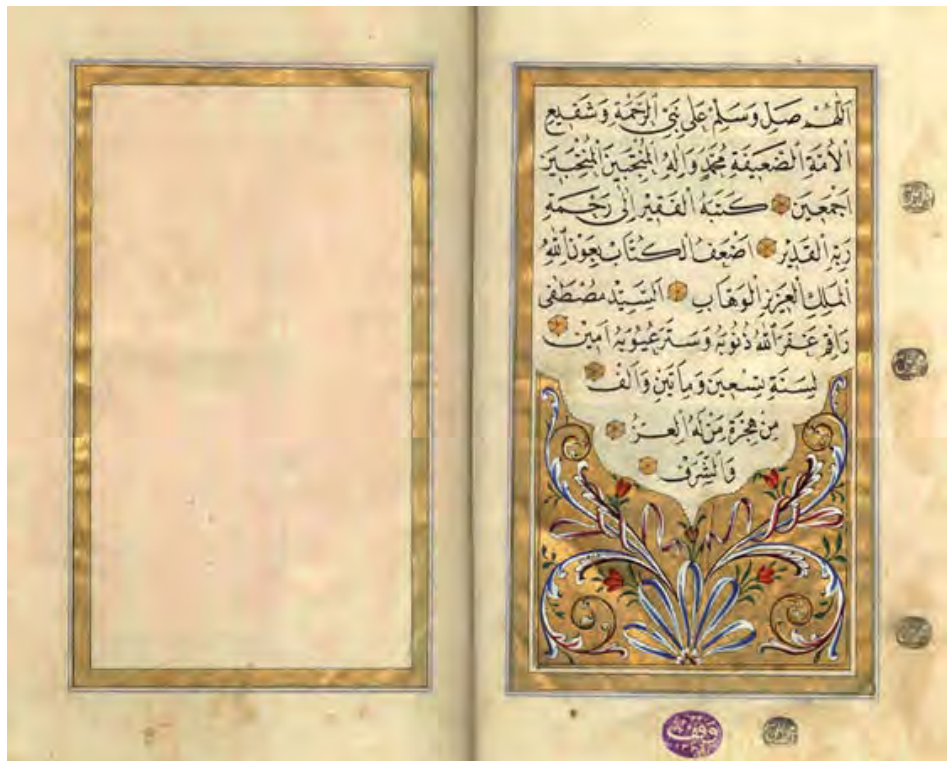 اَللّٰهُمَّ صَلِّ وَسَلِّمْ عَلٰى نَبِيِّ الرَّحْمَةِ وَشَفِيعِ
الْاُمَّةِ الضَّعِيفَةِ مُحَمَّدٍ وَاٰلِهِ الْمُنْتَجَبِينَ الْمُنْتَخَبِينَ
اَجْمَعِينَ كَتَبَهُ الْفَقِيرُ اِلٰى رَحْمَةِ
رَبِّهِ الْقَدِيرِ اَضْعَفُ الْكُتَّابِ بِعَوْنِ اللّٰهِ
الْمَلِكِ الْعَزِيزِ الْوَهَّابِ اَلسَّيِّدْ مُصْطَفٰى
رَاقِمْ غَفَرَ اللّٰهُ ذُنُوبَهُ وَسَتَرَ عُيُوبَهُ اٰمِينْ
لِسَنَةِ تِسْعِينَ وَمِاَتَيْنِ وَاَلْفْ
مِنْ هِجْرَةِ مَنْ لَهُ الْعِزُّ
وَالشَّرَفْ
وقف